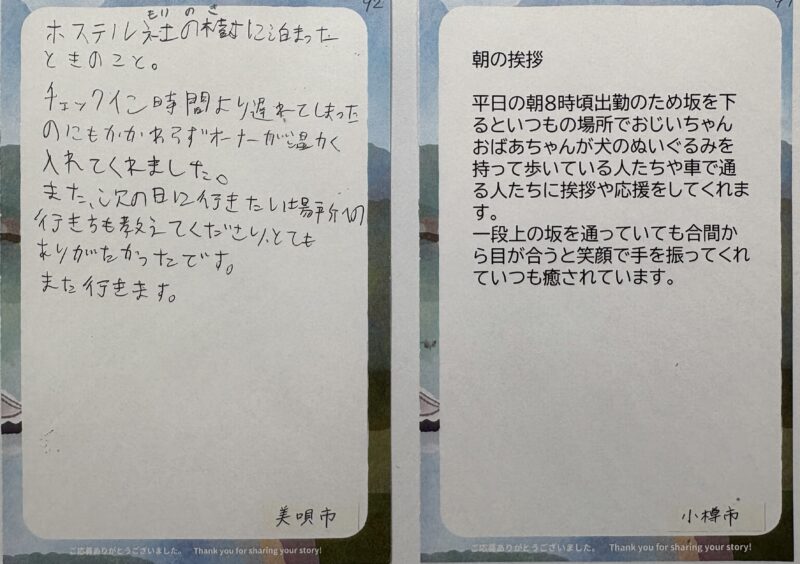 92
もりのき
ホステル社の樹に泊まった
ときのこと。
チェックイン時間より遅れてしまった
のにもかかわらずオーナーが温かく
入れてくれました。
また、次の日に行きたい場所への
行き方も教えてくださり、とても
ありがたかったです。
また行きます。
美唄市
ご応募ありがとうございました。 Thank you for sharing your story!
朝の挨拶
平日の朝8時頃出勤のため坂を下
るといつもの場所でおじいちゃん
おばあちゃんが犬のぬいぐるみを
持って歩いている人たちや車で通
る人たちに挨拶や応援をしてくれま
す。
一段上の坂を通っていても合間か
ら目が合うと笑顔で手を振ってくれ
ていつも癒されています。
小樽市
ご応募ありがとうございました。 Thank you for sharing your story!